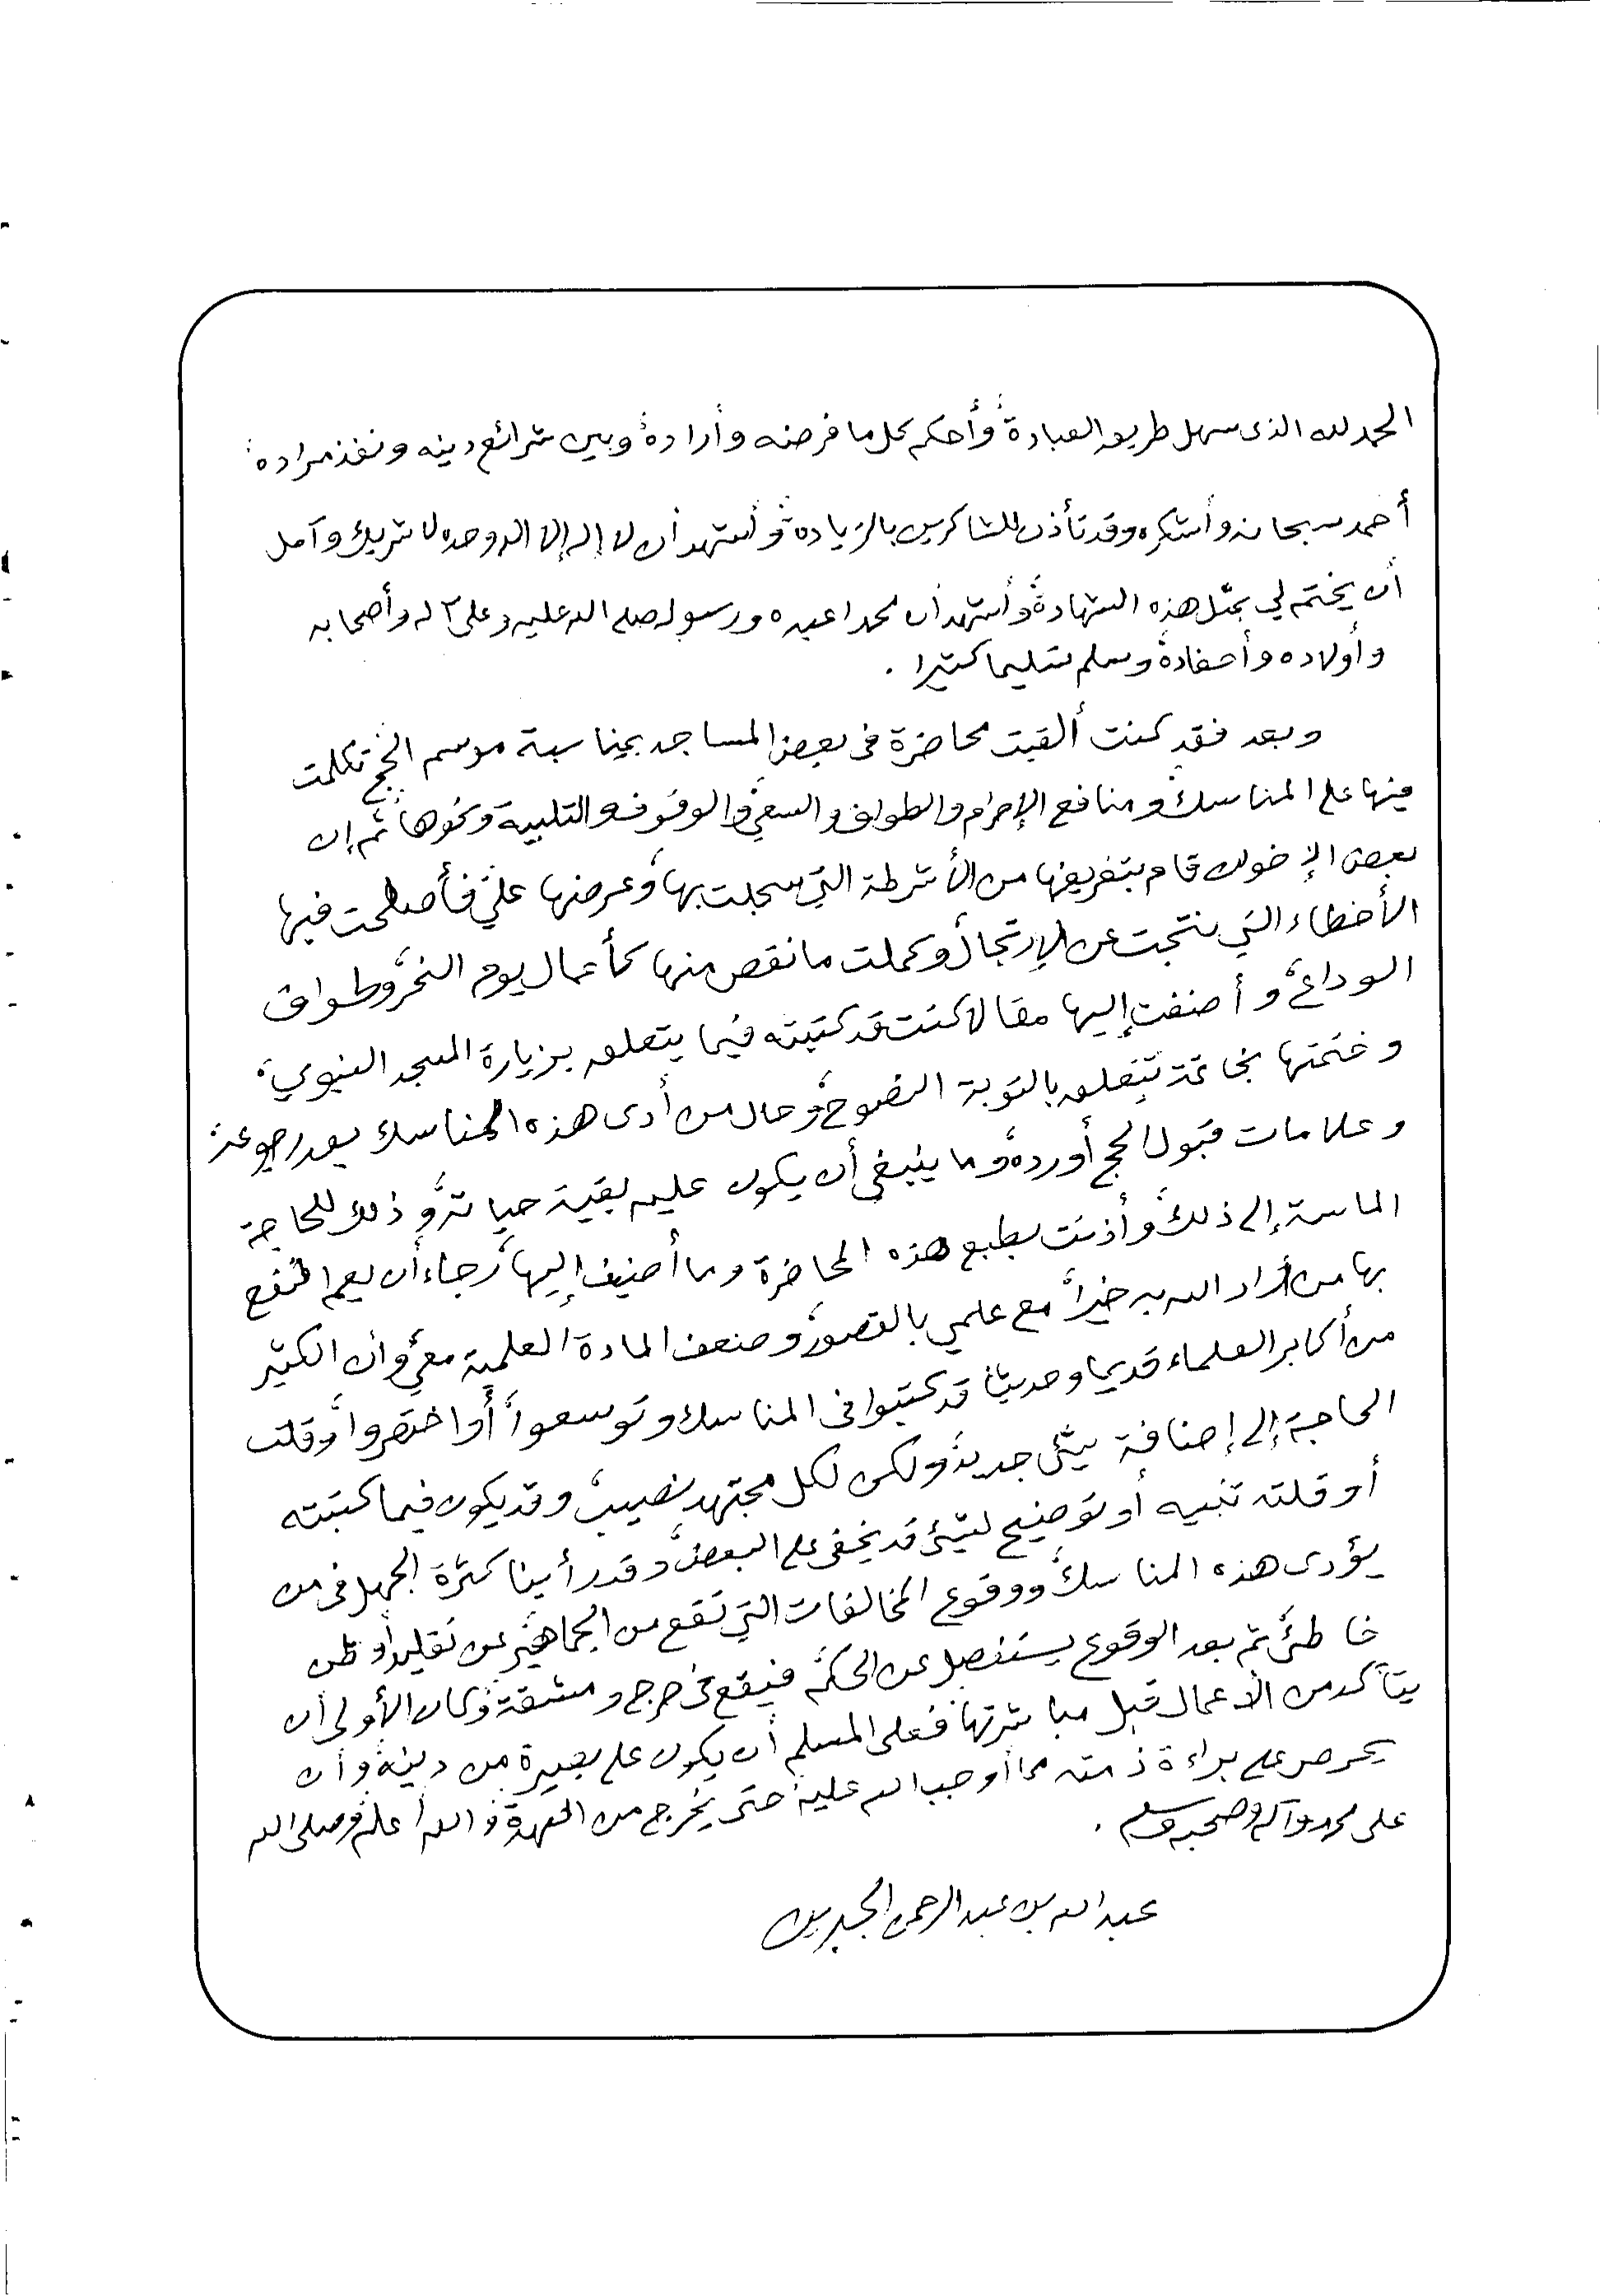 الحمد لله الذى سهل طريق العبادة، وأحكم كل ما فرضه وأراده، وبين شرائع دينه ونفذ مراده،
أحمد سبحانه وأشكره وقد تأذن للشاكرين بالزيادة، وأشهد أن لا إله إلا الله وحده لا شريك وآمل
أن يختم لي بمثل هذه الشهادة، وأشهد أن محمدا عبده ورسوله صلى الله عليه وعلى آله وأصحابه
وأولاده وأحفاده، وسلم تسليما كثيرا .
وبعد فقد كنت ألقيت محاضرة فى بعض المساجد بمناسبة موسم الحج، تكلمت
فيها على المناسك، ومنافع الإحرام والطواف والسعي، والوقوف والتلبية ونحوها، ثم إن
بعض الإخوان قام بتفريغها من الأشرطة التي سجلت بها، وعرضها علي، فأصلحت فيها
الأخطاء التي نتجت عن الإرتجال، وكملت ما نقص منها كأعمال يوم النحر، وطواف
الوداع، وأضفت إليها مقالا كنت قد كتبته فيما يتعلق بزيارة المسجد النبوي،
وختمتها بخاتمة تتعلق بالتوبة النصوح، وحال من أدى هذه المناسك بعد رجوعه،
وعلامات قبول الحج أورده، وما ينبغي أن يكون عليه بقية حياته، وذلك للحاجة
الماسة إلى ذلك، وأذنت بطبع هذه المحاضرة وما أضيف إليها، رجاء أن يعم النفع
بها من أراد الله به خيراً، مع علمي بالقصور، وضعف المادة العلمية معي، وأن الكثير
من أكابر العلماء قديما وحديثا قد كتبوا فى المناسك وتوسعوا، أو اختصروا، وقلت
الحاجة إلى إضافة شئ جديد، ولكن لكل مجتهد نصيب، وقد يكون فيما كتبته
أو قلته تنبيه أو توضيح لشئ قد يخفى على البعض، وقد رأينا كثرة الجهل فى من
يؤدى هذه المناسك، ووقوع المخالفات التي تقع من الجماهير، عن تقليد أو ظن
خاطئ، ثم بعد الوقوع يستفصل عن الحكم، فيقع فى حرج ومشقة، وكان الأولى أن
يتأكد من الأعمال قبل مباشرتها، فعلى المسلم أن يكون على بصيرة من دينه، وأن
يحرص على براءة ذمته مما أوجب الله عليه، حتى يخرج من العهدة، والله أعلم، وصلى الله
على محمد وآله وصحبه وسلم .
عبد الله بن عبد الرحمن الجبرين